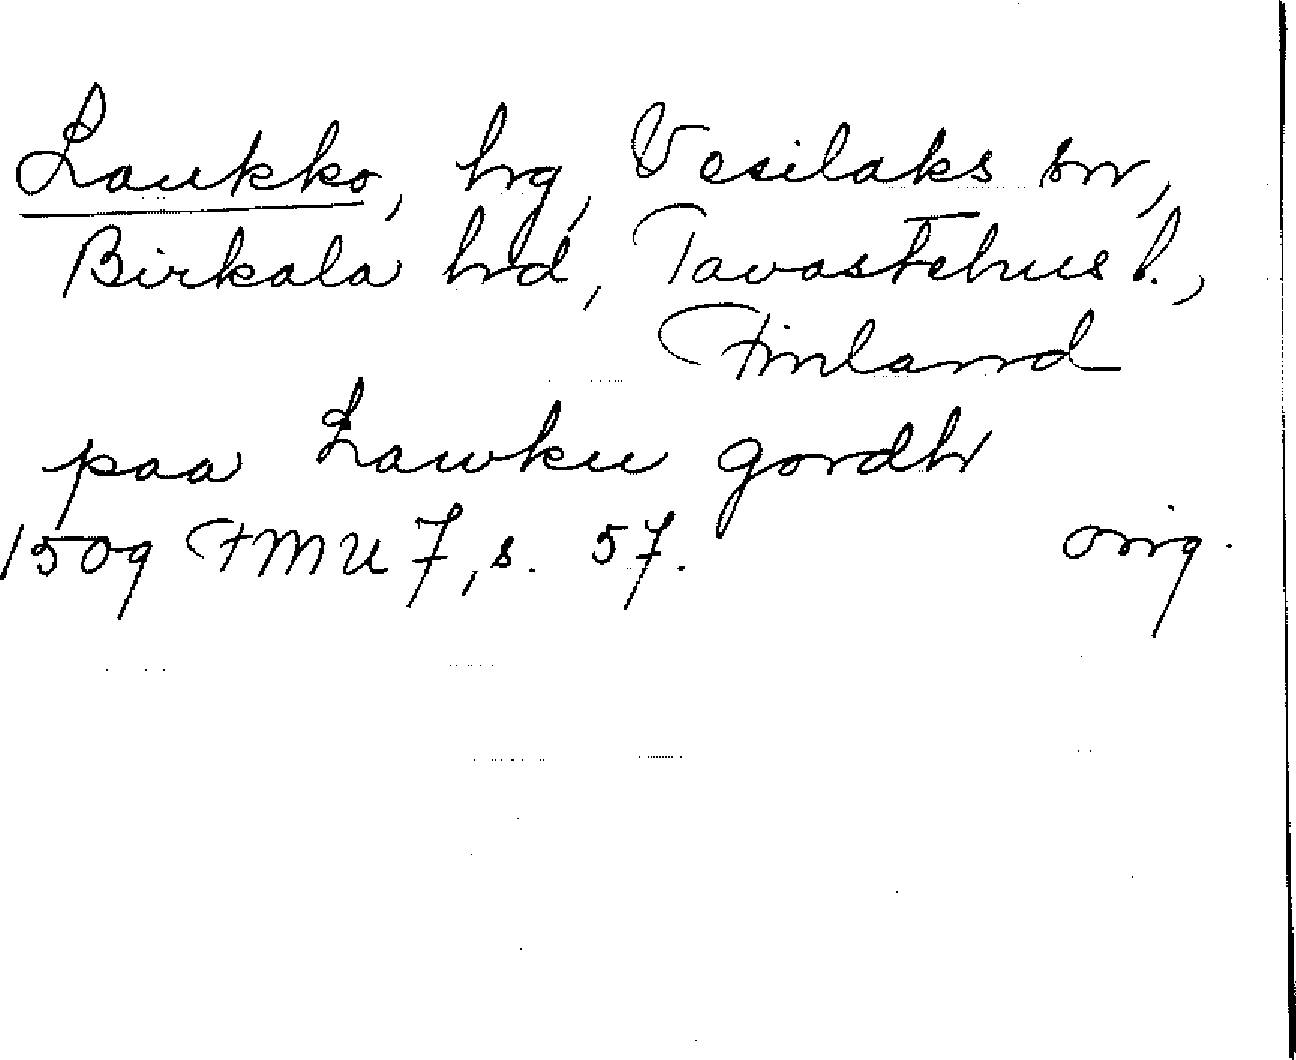 Laukko, hrg, Vesilaks sn,
Birkala hrd, Tavastehus l.,
Finland
paa Lawku gordh
1509 FMU 7, s. 57. orig.